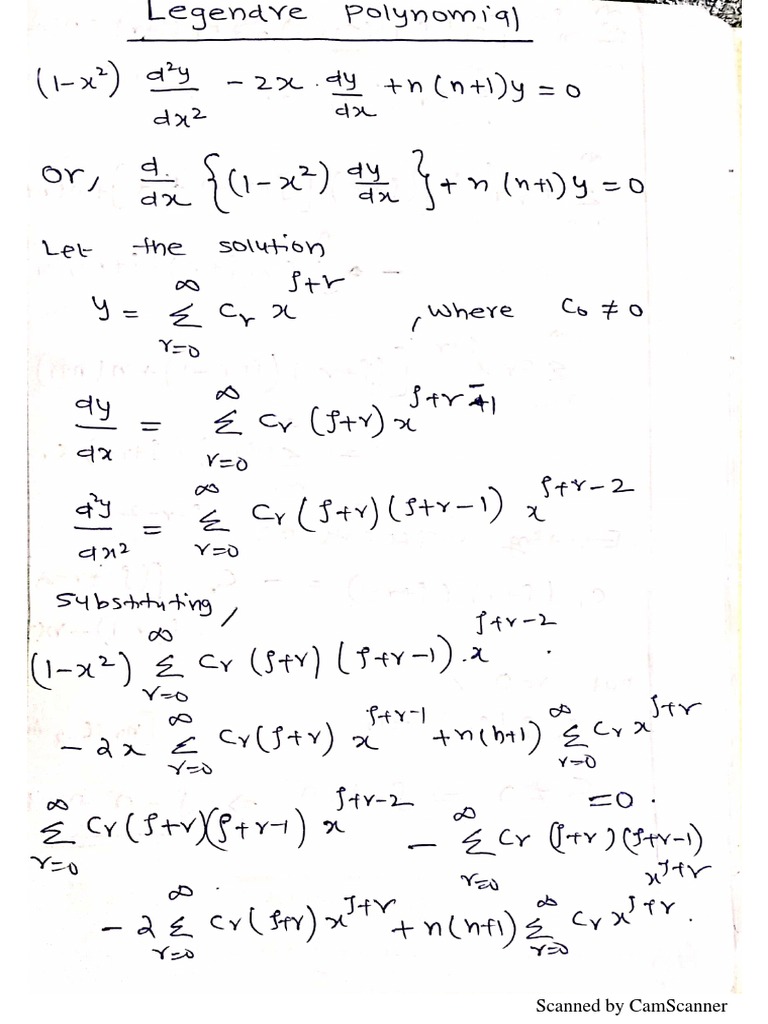 Legendre Polynomial
(1-x²) d²y/dx² - 2x · dy/dx + n(n+1)y = 0
or, d/dx {(1-x²) dy/dx} + n(n+1)y = 0
Let the solution
y = Σ_{r=0}^{∞} C_r x^{ρ+r} , where C₀ ≠ 0
dy/dx = Σ_{r=0}^{∞} C_r (ρ+r) x^{ρ+r-1}
d²y/dx² = Σ_{r=0}^{∞} C_r (ρ+r)(ρ+r-1) x^{ρ+r-2}
Substituting,
(1-x²) Σ_{r=0}^{∞} C_r (ρ+r)(ρ+r-1) · x^{ρ+r-2}
- 2x Σ_{r=0}^{∞} C_r (ρ+r) x^{ρ+r-1} + n(n+1) Σ_{r=0}^{∞} C_r x^{ρ+r}
= 0 .
Σ_{r=0}^{∞} C_r (ρ+r)(ρ+r-1) x^{ρ+r-2} - Σ_{r=0}^{∞} C_r (ρ+r)(ρ+r-1) x^{ρ+r}
- 2 Σ_{r=0}^{∞} C_r (ρ+r) x^{ρ+r} + n(n+1) Σ_{r=0}^{∞} C_r x^{ρ+r} .
Scanned by CamScanner